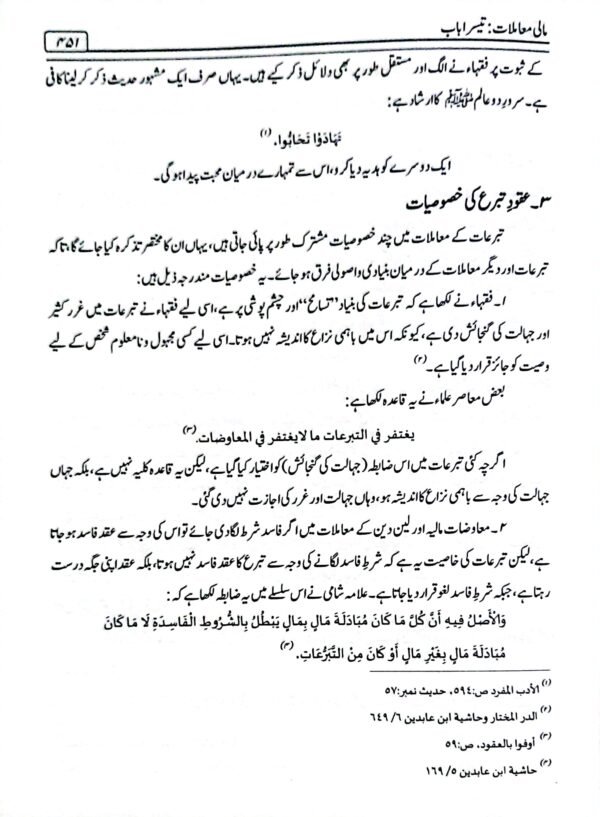 مالی معاملات: تیسرا باب
۴۵۱
کے ثبوت پر فقہاء نے الگ اور مستقل طور پر بھی دلائل ذکر کیے ہیں۔ یہاں صرف ایک مشہور حدیث ذکر کر لینا کافی
ہے۔ سرورِ دو عالم ﷺ کا ارشاد ہے:
تَهَادَوْا تَحَابُّوا. (۱)
ایک دوسرے کو ہدیہ دیا کرو، اس سے تمہارے درمیان محبت پیدا ہوگی۔
۳۔ عقودِ تبرع کی خصوصیات
تبرعات کے معاملات میں چند خصوصیات مشترک طور پر پائی جاتی ہیں، یہاں ان کا مختصر تذکرہ کیا جائے گا، تاکہ
تبرعات اور دیگر معاملات کے درمیان بنیادی و اصولی فرق ہو جائے۔ یہ خصوصیات مندرجہ ذیل ہیں:
۱۔ فقہاء نے لکھا ہے کہ تبرعات کی بنیاد "تسامح" اور چشم پوشی پر ہے، اسی لیے فقہاء نے تبرعات میں غرر کثیر
اور جہالت کی گنجائش دی ہے، کیونکہ اس میں باہمی نزاع کا اندیشہ نہیں ہوتا۔ اسی لیے کسی مجہول و نامعلوم شخص کے لیے
وصیت کو جائز قرار دیا گیا ہے۔ (۲)
بعض معاصر علماء نے یہ قاعدہ لکھا ہے:
يغتفر في التبرعات ما لا يغتفر في المعاوضات. (۳)
اگرچہ کئی تبرعات میں اس ضابطہ (جہالت کی گنجائش) کو اختیار کیا گیا ہے، لیکن یہ قاعدہ کلیہ نہیں ہے، بلکہ جہاں
جہالت کی وجہ سے باہمی نزاع کا اندیشہ ہو، وہاں جہالت اور غرر کی اجازت نہیں دی گئی۔
۲۔ معاوضات مالیہ اور لین دین کے معاملات میں اگر فاسد شرط لگا دی جائے تو اس کی وجہ سے عقد فاسد ہو جاتا
ہے، لیکن تبرعات کی خاصیت یہ ہے کہ شرطِ فاسد لگانے کی وجہ سے تبرع کا عقد فاسد نہیں ہوتا، بلکہ عقد اپنی جگہ درست
رہتا ہے، جبکہ شرطِ فاسد لغو قرار دیا جاتا ہے۔ علامہ شامی نے اس سلسلے میں یہ ضابطہ لکھا ہے کہ:
وَالْأَصْلُ فِيهِ أَنَّ كُلَّ مَا كَانَ مُبَادَلَةَ مَالٍ بِمَالٍ يَبْطُلُ بِالشُّرُوطِ الْفَاسِدَةِ لَا مَا كَانَ
مُبَادَلَةَ مَالٍ بِغَيْرِ مَالٍ أَوْ كَانَ مِنْ التَّبَرُّعَاتِ. (۴)
(۱) الأدب المفرد ص: ۵۹۴، حدیث نمبر: ۵۷
(۲) الدر المختار وحاشية ابن عابدين ۶/ ۶۴۹
(۳) أوفوا بالعقود، ص: ۵۹
(۴) حاشية ابن عابدين ۵/ ۱۶۹